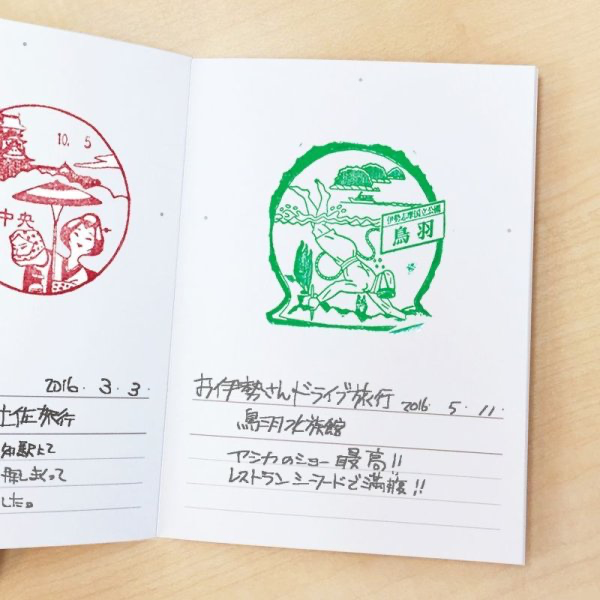 10.5
中央
2016.3.3.
土佐旅行
知駅にて
探しまくって
した。
伊勢志摩国立公園
鳥羽
お伊勢さんドライブ旅行 2016.5.11.
鳥羽水族館
アシカのショー最高!!
レストランシーフードで満腹!!